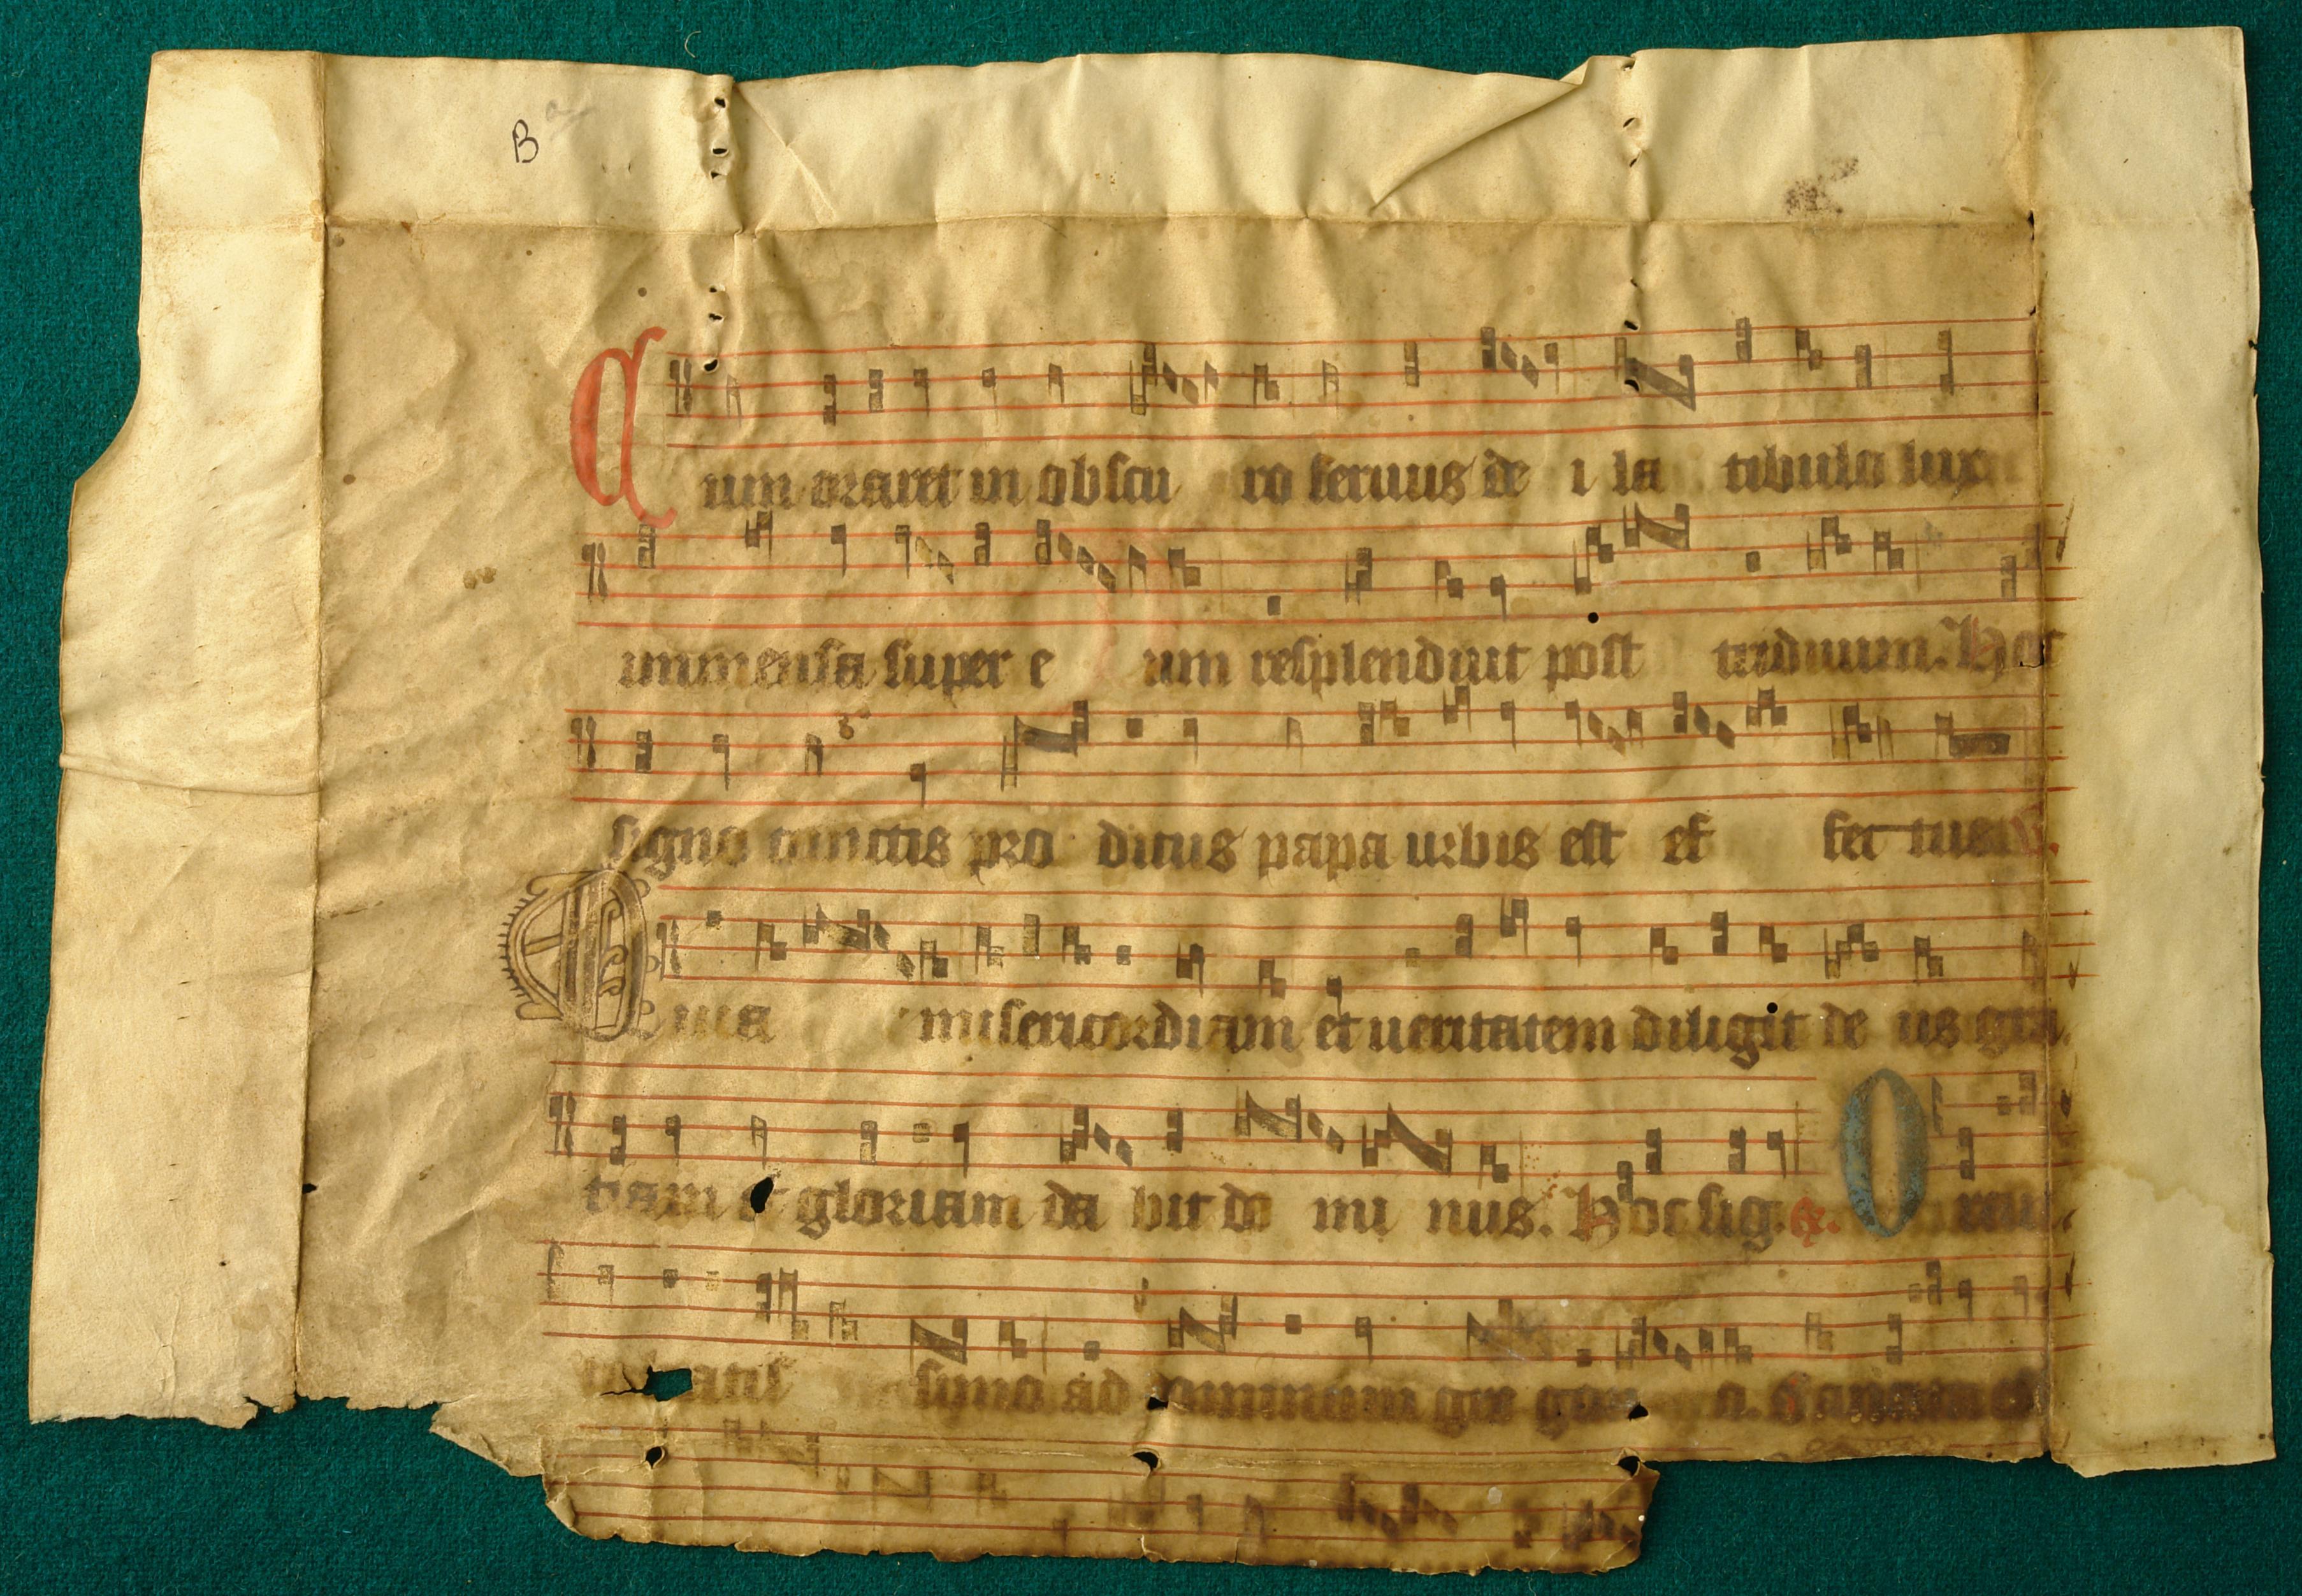 B
Cum oraret in obscu ro seruus de i la tibulo lux
immensa super e um resplenduit post triduum. Hoc
signo cunctis pro ditus papa urbis est ef fec tus V.
Quia misericordiam et ueritatem diligit de us gra
tiam et gloriam da bit do mi nus. Hoc sig. R. O
simo ad dominum gre